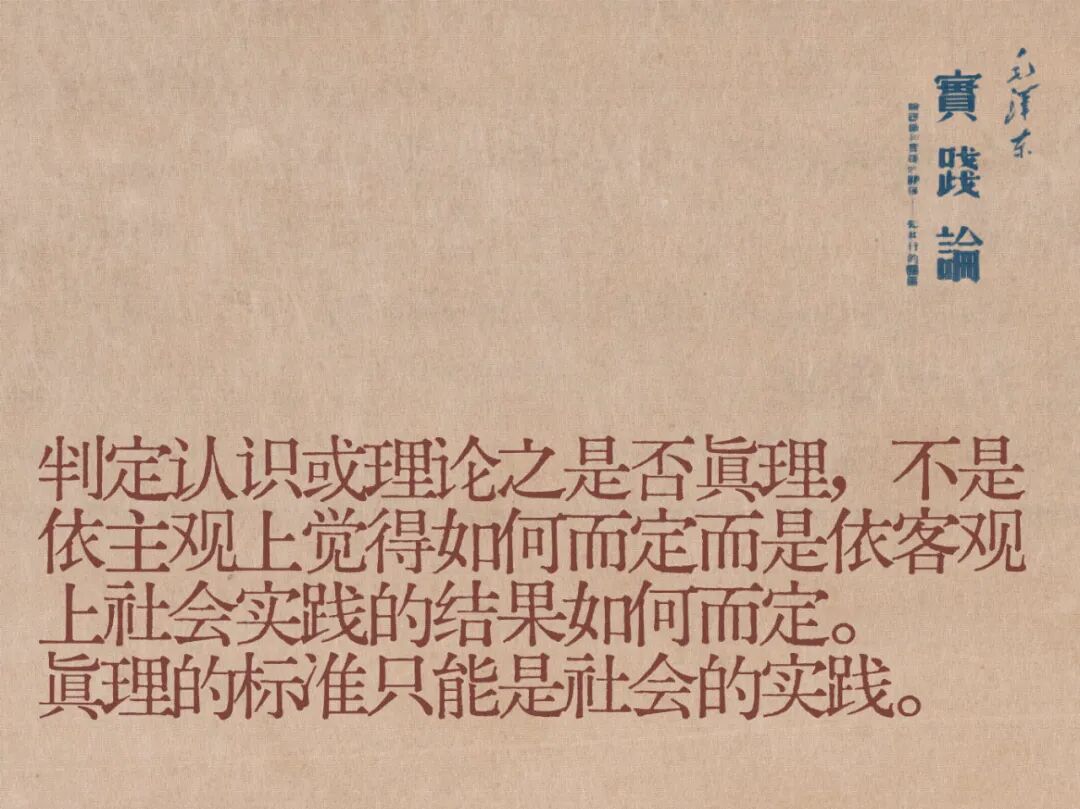 毛泽东
實踐論
判定认识或理论之是否眞理，不是
依主观上觉得如何而定而是依客观
上社会实践的结果如何而定。
眞理的标准只能是社会的实践。